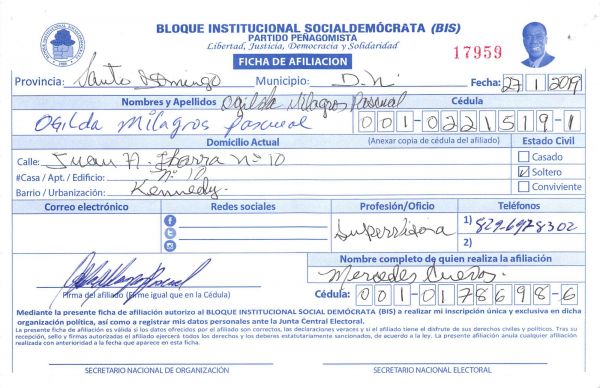 BLOQUE INSTITUCIONAL SOCIALDEMÓCRATA (BIS)
PARTIDO PEÑAGOMISTA
Libertad, Justicia, Democracia y Solidaridad
FICHA DE AFILIACION
17959
Provincia: Santo Domingo Municipio: D.N. Fecha: 27/1/2019
Nombres y Apellidos Ogilda Milagros Pascual Cédula
Ogilda Milagros Pascual 001-0221519-1
Domicilio Actual (Anexar copia de cédula del afiliado) Estado Civil
Calle: Juan A. Ibarra Nº 10 Casado
#Casa / Apt. / Edificio: Nº 10 Soltero
Barrio / Urbanización: Kennedy. Conviviente
Correo electrónico Redes sociales Profesión/Oficio Teléfonos
Supervisora 1) 829-697-8302
2)
Nombre completo de quien realiza la afiliación
Mercedes Cuevas.
Firma del afiliado (Firme igual que en la Cédula) Cédula: 001-0178698-6
Mediante la presente ficha de afiliación autorizo al BLOQUE INSTITUCIONAL SOCIAL DEMÓCRATA (BIS) a realizar mi inscripción única y exclusiva en dicha
organización política, así como a registrar mis datos personales ante la Junta Central Electoral.
La presente ficha de afiliación es válida si los datos ofrecidos por el afiliado son correctos, las declaraciones veraces y si el afiliado tiene el disfrute de sus derechos civiles y políticos. Tras su
recepción, sello y firmas autorizadas el afiliado ejercerá todos los derechos y los deberes estatutariamente sancionados, de acuerdo a la ley. La presente afiliación anula cualquier afiliación
realizada con anterioridad a la fecha que aparece en esta ficha.
SECRETARIO NACIONAL DE ORGANIZACIÓN SECRETARIO NACIONAL ELECTORAL